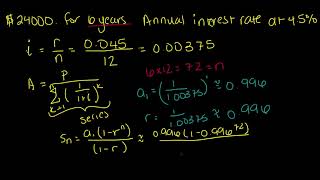 $24000. for 6 years Annual interest rate at 4.5%
i = r/n = 0.045/12 = 0.00375
6x12 = 72 = n
A = P / Σ (1/(1+i))^k k=1
a₁ = (1/1.00375)¹ ≈ 0.996
series
r = 1/1.00375 ≈ 0.996
Sn = a₁(1-rⁿ)/(1-r) ≈ 0.996(1-0.996⁷²)